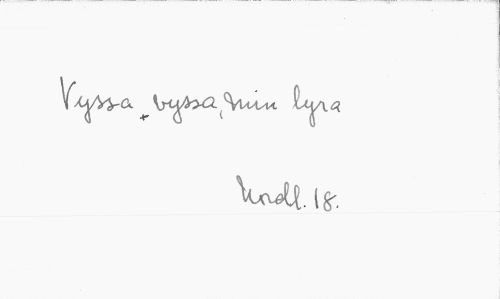 Vyssa, vyssa, min lyra
Nordl. 18.